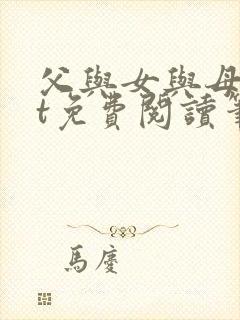 父與女與母
t免費閱讀筆
馬慶